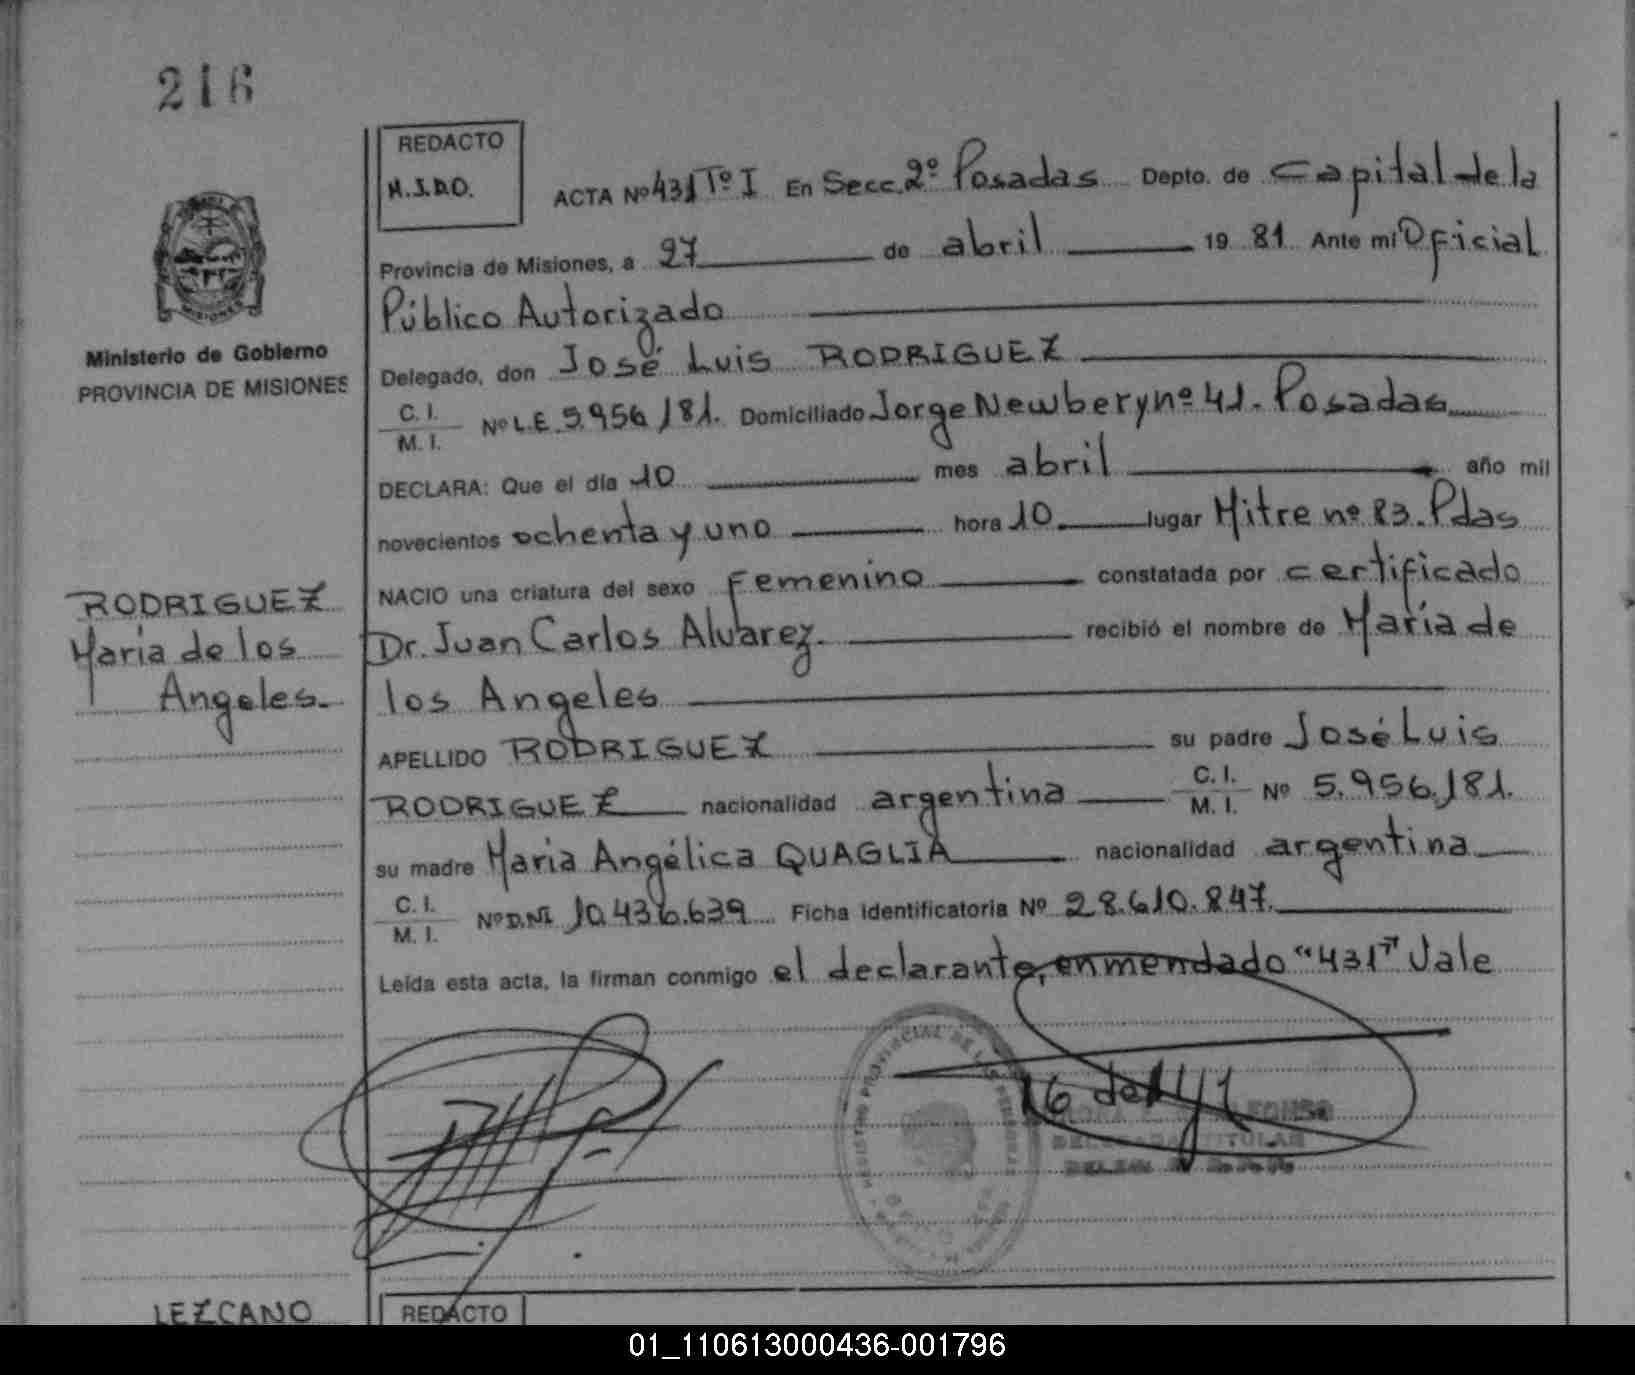 216
REDACTO
M.S.D.O.
ACTA Nº 431 Tº I En Secc. 2º Posadas Depto. de Capital de la
Provincia de Misiones, a 27 de abril 19 81 Ante mi Oficial
Público Autorizado
MISIONES
Ministerio de Gobierno
PROVINCIA DE MISIONES
Delegado, don José Luis RODRIGUEZ
C. I.
M. I. Nº L.E. 5.956.181. Domiciliado Jorge Newbery nº 41. Posadas
DECLARA: Que el día 10 mes abril año mil
novecientos ochenta y uno hora 10 lugar Mitre nº 83. Pdas
NACIO una criatura del sexo Femenino constatada por certificado
RODRIGUEZ
María de los
Angeles.
Dr. Juan Carlos Alvarez. recibió el nombre de María de
los Angeles
APELLIDO RODRIGUEZ su padre José Luis
RODRIGUEZ nacionalidad argentina C. I. M. I. Nº 5.956.181.
su madre Maria Angélica QUAGLIA nacionalidad argentina
C. I.
M. I. Nº D.NI 10.436.639 Ficha identificatoria Nº 28.610.847.
Leída esta acta, la firman conmigo el declarante, enmendado "431" Vale
REGISTRO PROVINCIAL DE LAS PERSONAS
TITULAR
LEZCANO
REDACTO
01_110613000436-001796